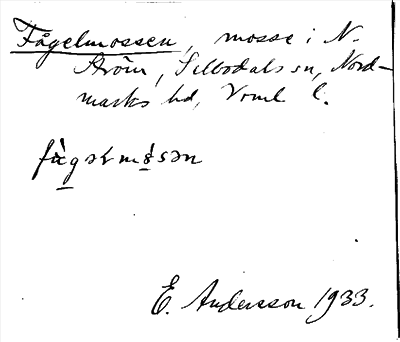 Fågelmossen, mosse i N.
Ström, Sillbodals sn, Nord-
marks hd, Vrml l.
E. Andersson 1933.